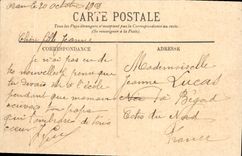 Oran le 20 Octobre 1908
CARTE POSTALE
Tous les Pays étrangers n'acceptent pas la Correspondance au recto
(Se renseigner à la Poste)
Chère petite Jeanne
CORRESPONDANCE
ADRESSE
Je n'ai pas eu de
tes nouvelles je pense que
tu dois à l'école
pendant que maman
ton papa
qui t'embrasse de tout
cœur
Mademoiselle
Jeanne Lucas
à Bégard
Côtes du Nord
France